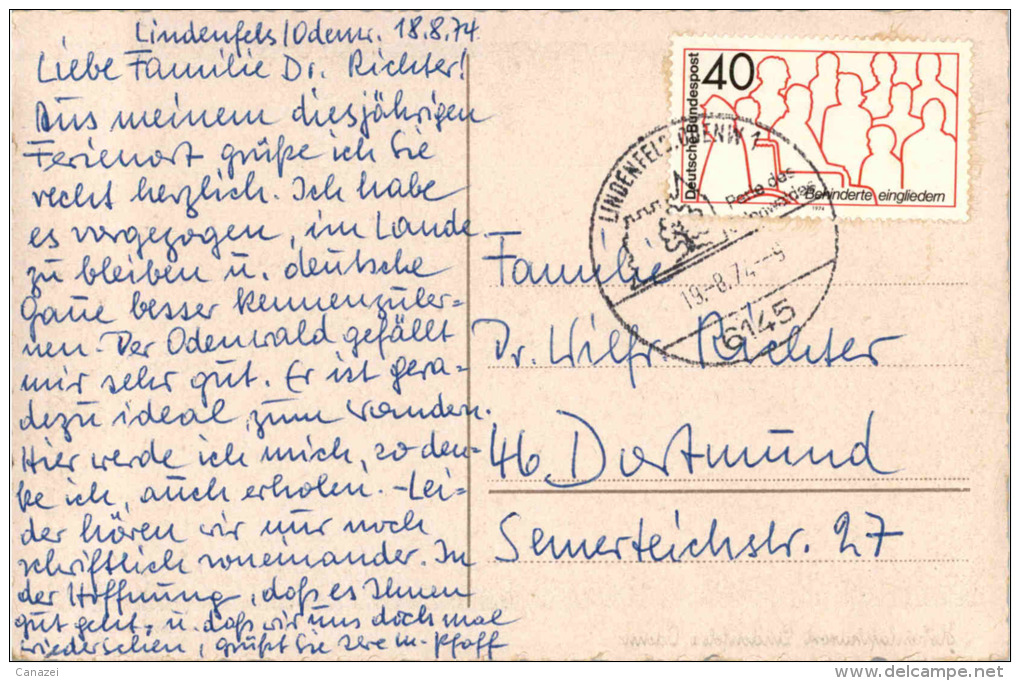 Lindenfels/Odenw. 18.8.74
Liebe Familie Dr. Richter!
Aus meinem diesjährigen
Ferienort grüße ich Sie
recht herzlich. Ich habe
es vorgezogen, im Lande
zu bleiben u. deutsche
Gaue besser kennenzuler-
nen. Der Odenwald gefällt
mir sehr gut. Er ist gera-
dezu ideal zum Wandern.
Hier werde ich mich, so den-
ke ich, auch erholen. - Lei-
der hören wir nur noch
schriftlich voneinander. In
der Hoffnung, daß es Ihnen
gut geht, u. daß wir uns doch mal
wiedersehen, grüßt Sie Pfaff
Deutsche Bundespost
40
Behinderte eingliedern
1974
LINDENFELS, ODENW 1
Perle des
Odenwaldes
19.-8.74--9
6145
Familie
Dr. Wilfr. Richter
46 Dortmund
Semerteichstr. 27
Canazei
delcampe.net